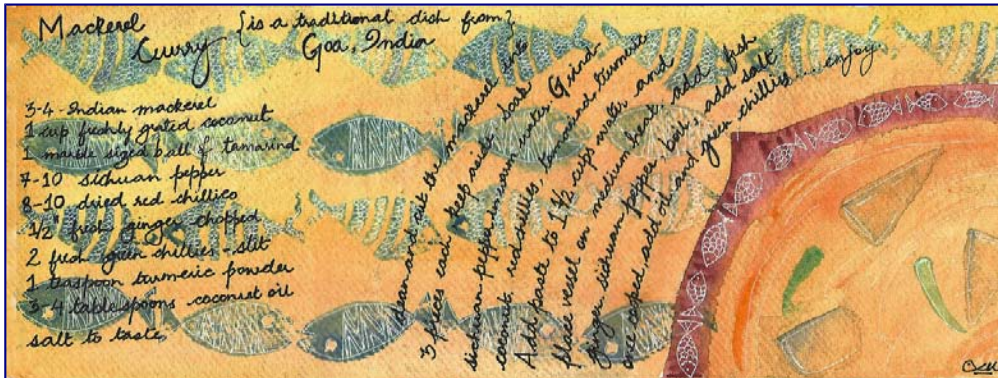 Mackerel
Curry
{is a traditional dish from}
Goa, India
3-4 - Indian mackerel
1 cup freshly grated coconut
1 marble sized ball of tamarind
7-10 sichuan pepper
8-10 dried red chillies
1/2" fresh ginger - chopped
2 fresh green chillies - slit
1 teaspoon turmeric powder
3-4 tablespoons coconut oil
salt to taste
clean and cut the mackerel into
3 pieces and keep aside. Soak
sichuan pepper in warm water. Grind
coconut, red chillies, tamarind, turmeric
Add paste to 1 1/2 cups water and
place vessel on medium heat, add fish
ginger, sichuan pepper, boil, add salt
once cooked add oil and green chillies.... enjoy.